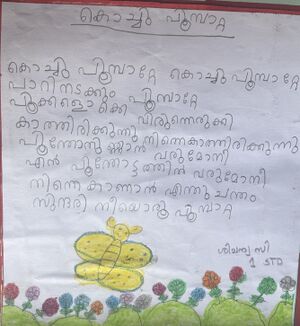 കൊച്ചു പൂമ്പാറ്റ
കൊച്ചു പൂമ്പാറ്റേ കൊച്ചു പൂമ്പാറ്റേ
പാറിനടക്കും പൂമ്പാറ്റേ
പൂക്കളൊക്കെ വിരുന്നൊരുക്കി
കാത്തിരിക്കുന്നു നിന്നെകാത്തിരിക്കുന്നു
പൂന്തേനുണ്ണാൻ വരുമോനീ
എൻ പൂന്തോട്ടത്തിൻ വരുമോനീ
നിന്നെ കാണാൻ എന്തു ചന്തം
സുന്ദരി നീയൊരു പൂമ്പാറ്റ
സി
1 STD